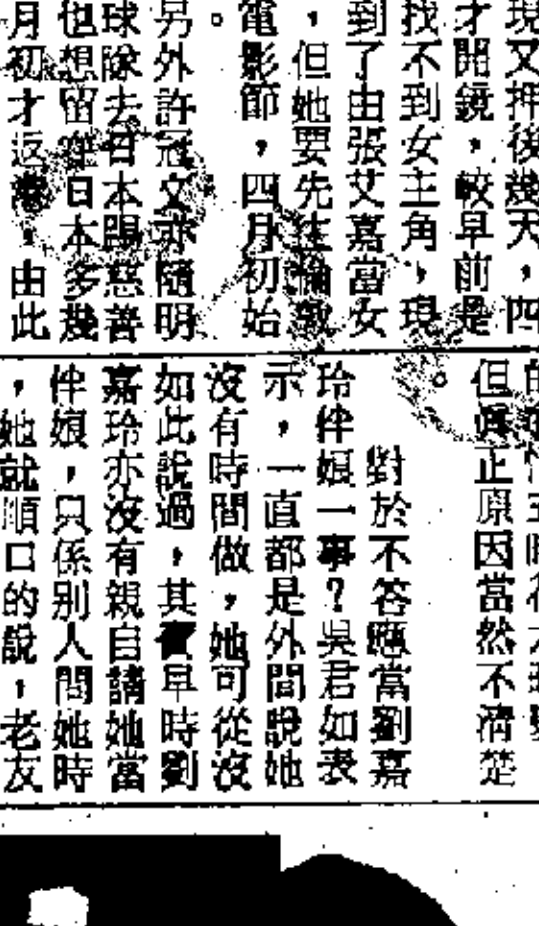 現又押後幾天，四
才開鏡，較早前是
找不到女主角，現
到了由張艾嘉當女
，但她要先往倫敦
電影節，四月初始
。
另外許冠文亦隨明
球隊去日本踢慈善
也想留在日本多幾
月初才返港，由此
但真正原因當然不清楚
。
對於不答應當劉嘉
玲伴娘一事？吳君如表
示，一直都是外間說她
沒有時間做，她可從沒
如此說過，其實早時劉
嘉玲亦沒有親自請她當
伴娘，只係別人問她時
，她就順口的說，老友